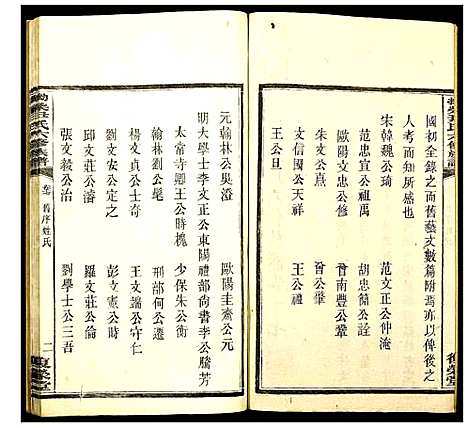 國初全錄之而舊藝文數篇附焉亦以俾後之
人考而知所感也
宋韓魏公琦
范文正公仲淹
范忠宣公祖禹
胡忠簡公詮
歐陽文忠公修
曾南豐公鞏
朱文公熹
曾公肇
文信國公天祥
王公禮
王公旦
復榮堂
元翰林吳公澄
歐陽圭齋公元
明大學士李文正公東陽
禮部尚書李公騰芳
太常寺卿王公時槐
少保朱公衡
翰林劉公髦
刑部何公遷
楊文貞公士奇
王文端公守仁
劉文安公定之
彭文憲公時
邱文莊公濬
羅文莊公倫
張文毅公治
劉學士公三吾
氏六修族譜
卷首 舊序姓氏
二
復榮堂